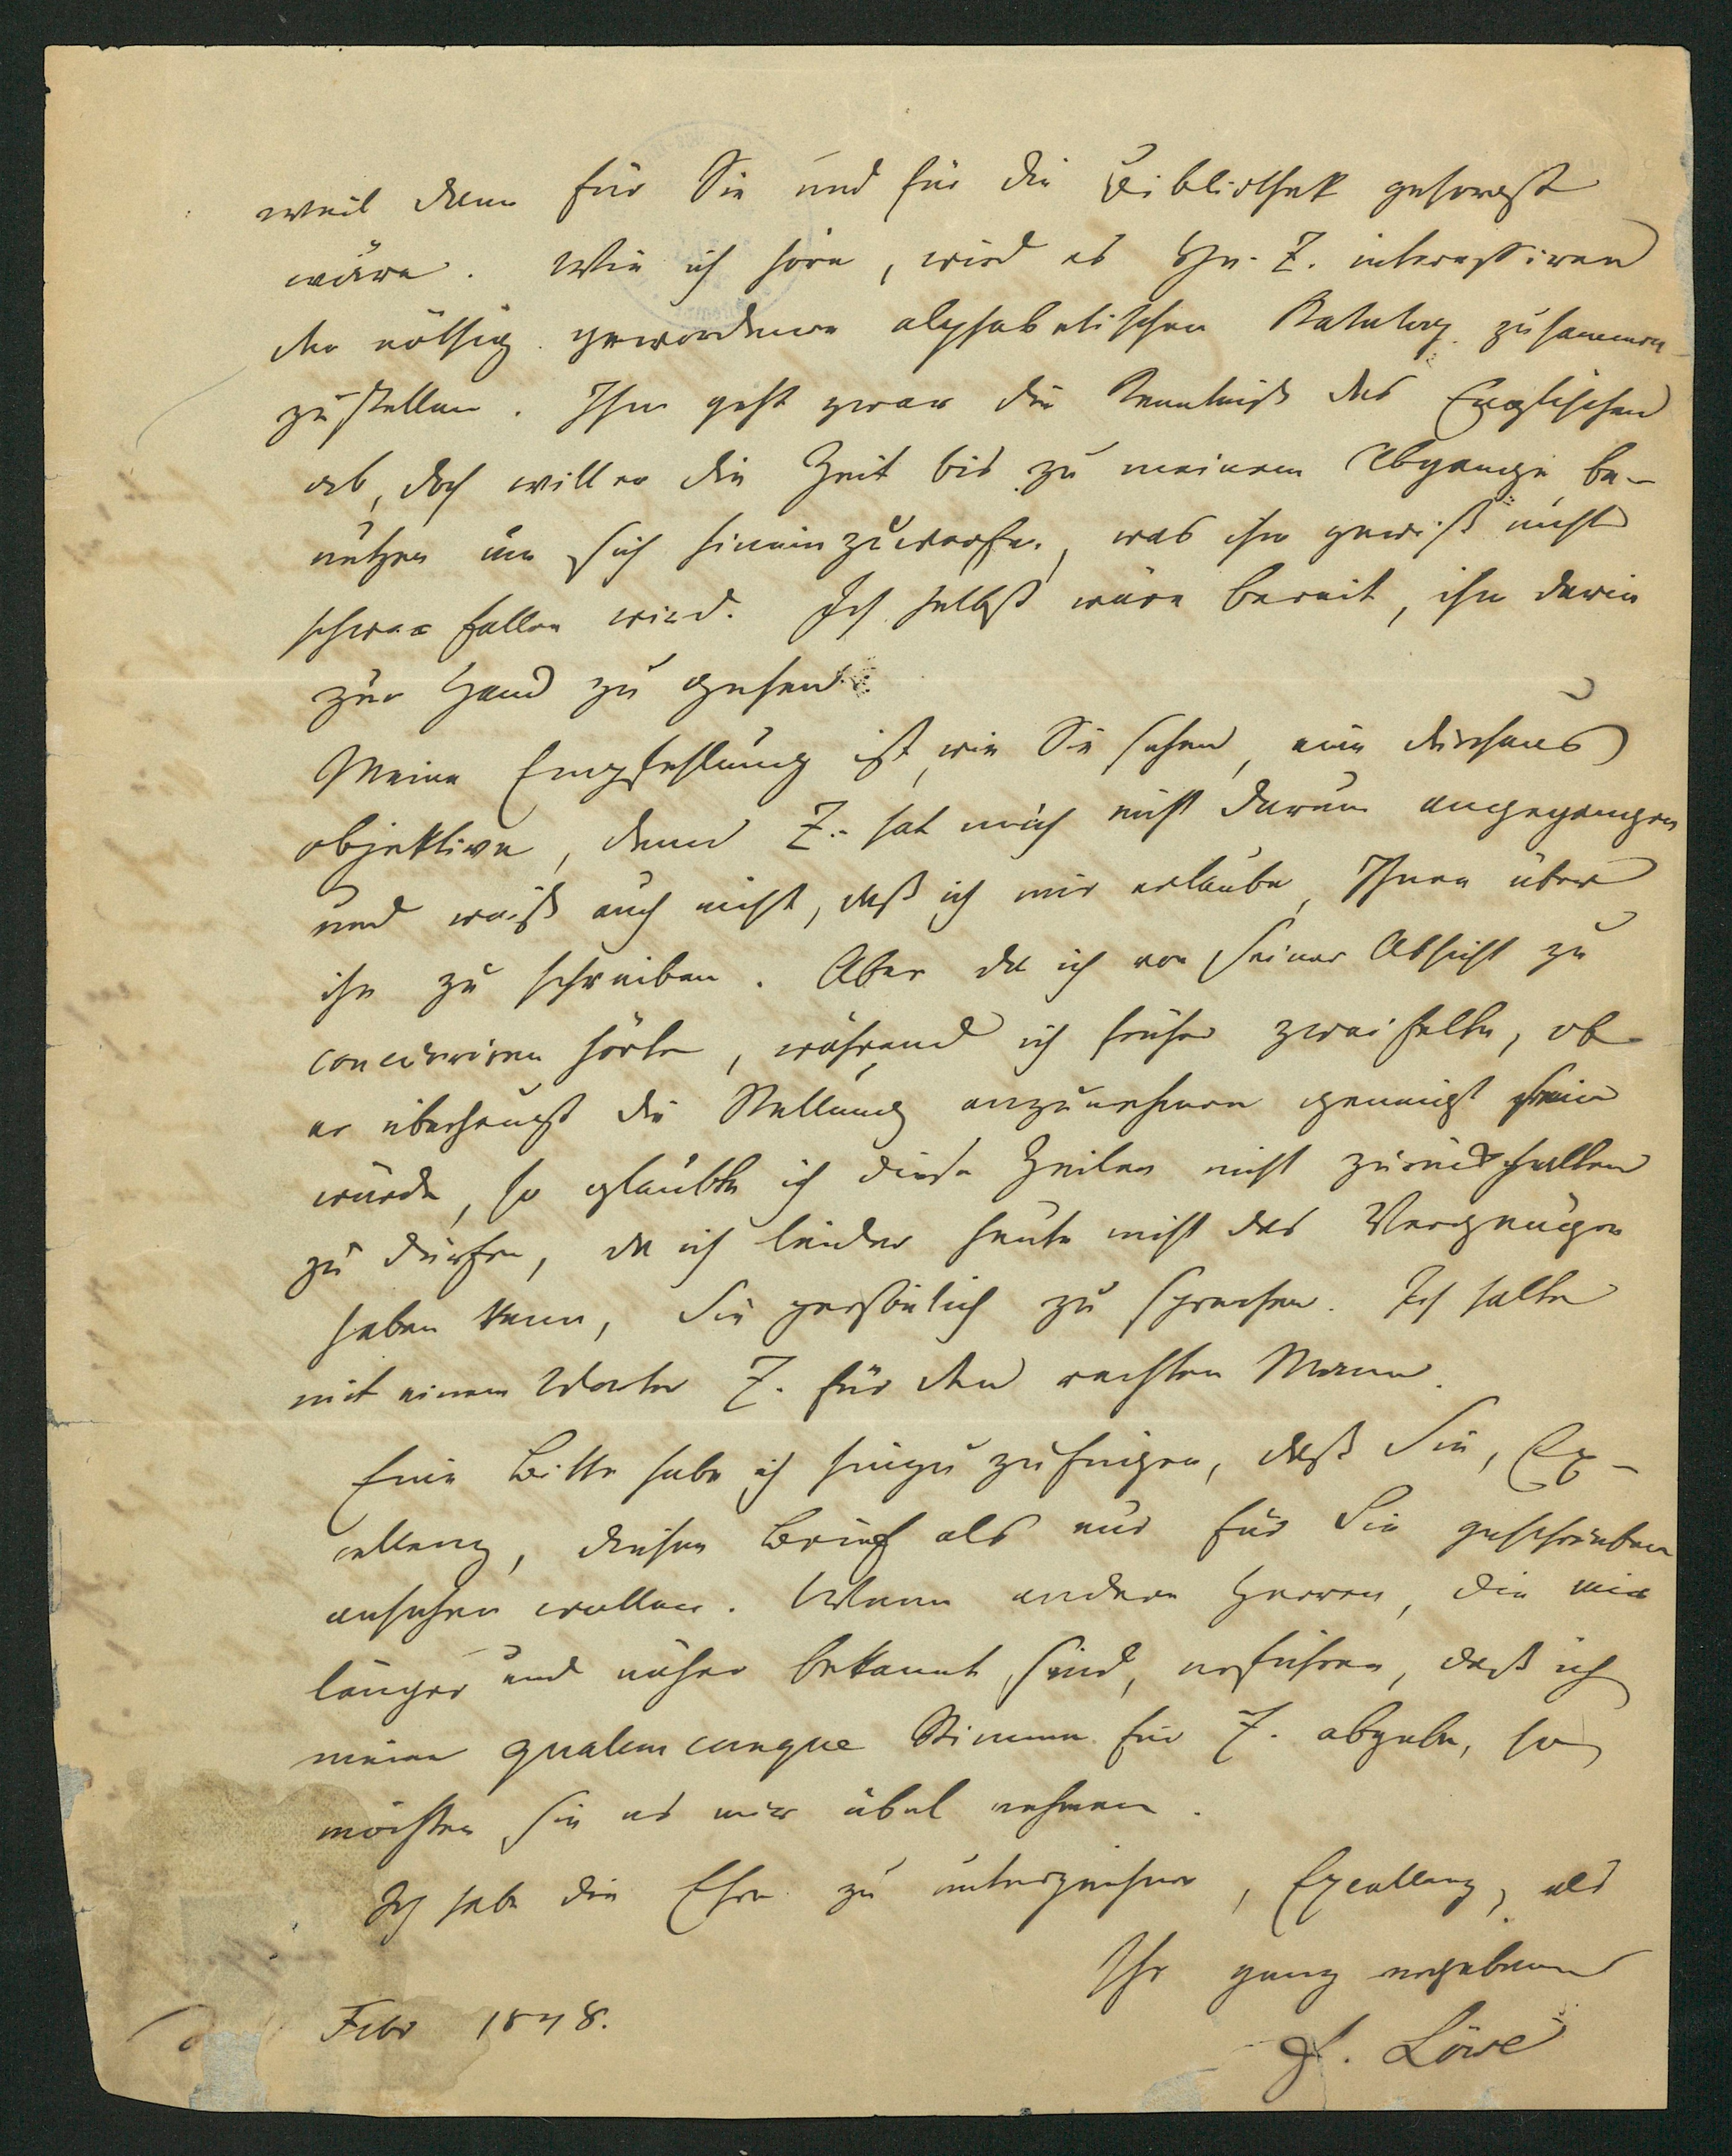 weil dann für Sie und für die Bibliothek gesorgt
wäre. Wie ich höre, wird es Hn. Z. interessiren
den nöthig gewordenen alphabetischen Katalog zusammen-
zustellen. Ihm geht zwar die Kenntniß des Englischen
ab, doch will er die Zeit bis zu meinem Abgange be-
nutzen um sich hineinzuwerfen, was ihm gewiß nicht
schwer fallen wird. Ich selbst wäre bereit, ihm darin
zur Hand zu gehen.
Meine Empfehlung ist, wie Sie sehen, eine durchaus
objektive, denn Z. hat mich nicht darum angegangen
und weiß auch nicht, daß ich mir erlaube, Ihnen über
ihn zu schreiben. Aber da ich von seiner Absicht zu
concurriren hörte, während ich früher zweifelte, ob
er überhaupt die Stellung anzunehmen geneigt sein
würde, so glaubte ich diese Zeilen nicht zurückhalten
zu dürfen, da ich leider heute nicht das Vergnügen
haben kann, Sie persönlich zu sprechen. Ich halte
mit einem Worte Z. für den rechten Mann.
Eine Bitte habe ich hinzuzufügen, daß Sie, Ex-
cellenz, diesen Brief als nur für Sie geschrieben
ansehen wollen. Wenn andere Herren, die mir
länger und näher bekannt sind, erführen, daß ich
meine qualemcunque Stimme für Z. abgebe, so
möchten sie es mir übel nehmen.
Ich habe die Ehre zu unterzeichnen, Excellenz, als
Ihr ganz ergebener
Febr 1848.
L. Löwe